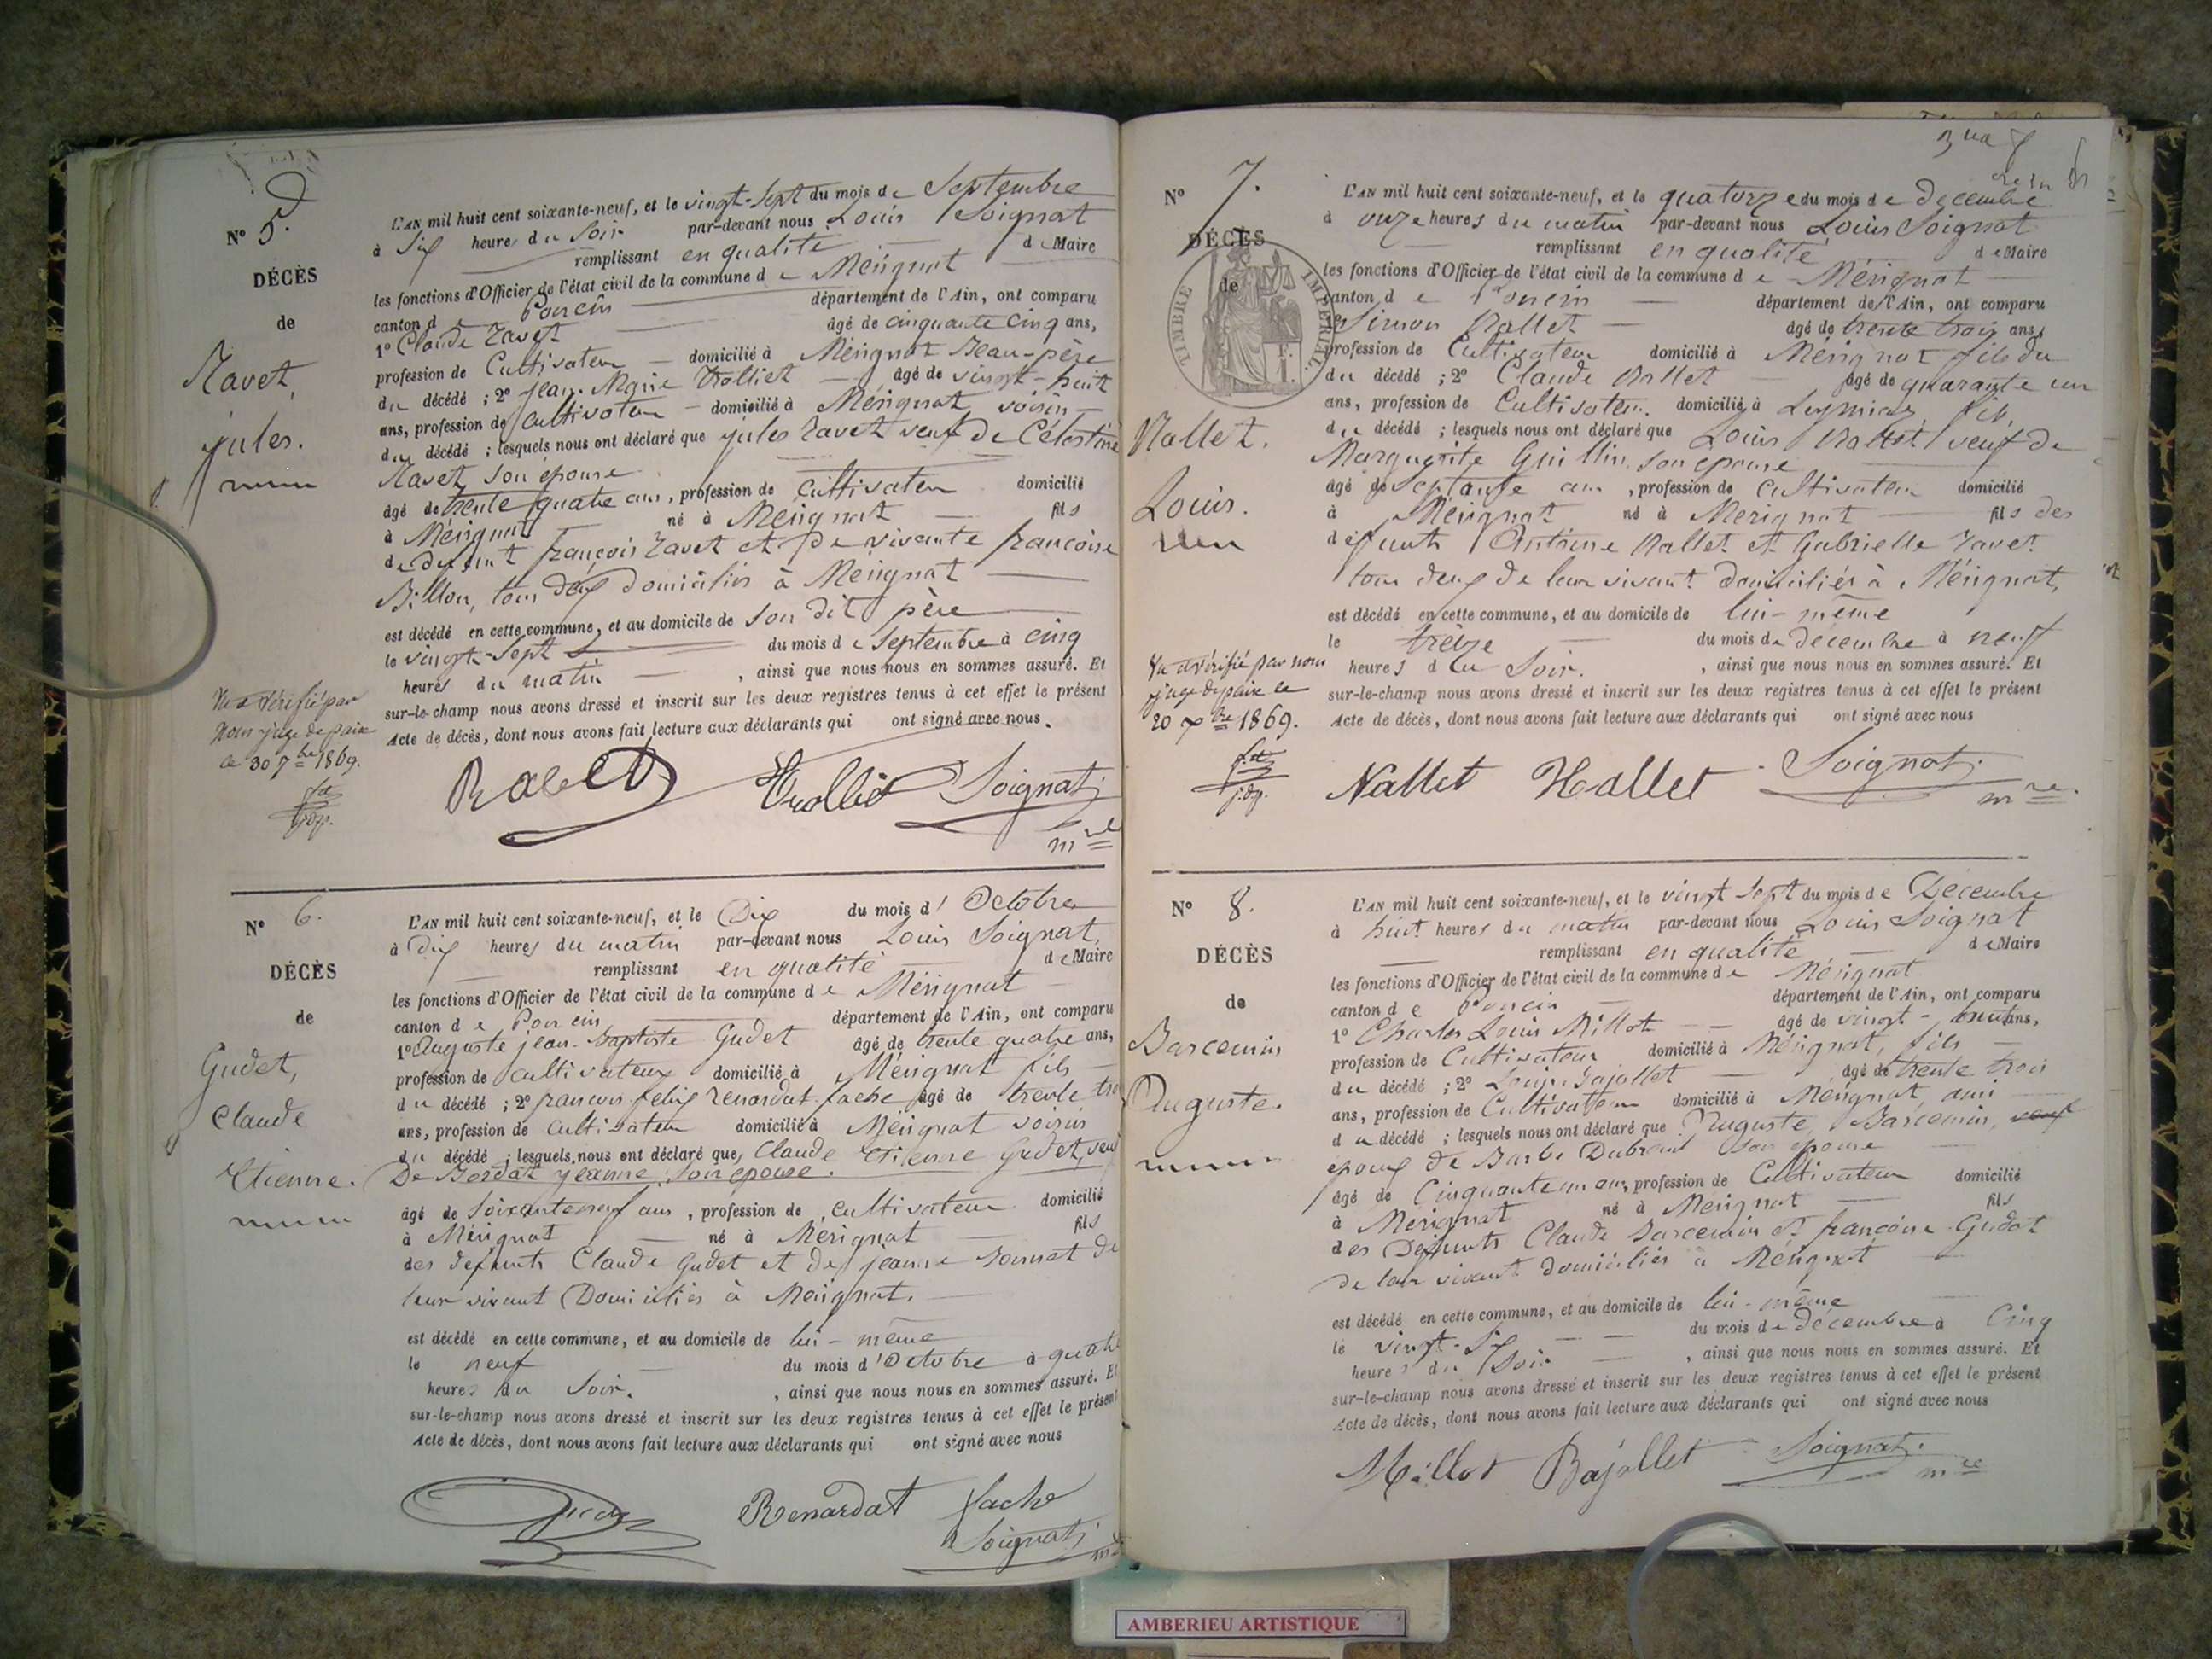 Nº 5.
DÉCÈS
de
Ravet,
jules.
L'AN mil huit cent soixante-neuf, et le vingt-sept du mois de Septembre
à Six heures du Soir par-devant nous Louis Soignat
remplissant en qualité de Maire
les fonctions d'Officier de l'état civil de la commune de Mérignat
canton de Poncin département de l'Ain, ont comparu
1º Claude Ravet âgé de cinquante cinq ans,
profession de Cultivateur domicilié à Mérignat Beau-père
du décédé ; 2º jean-Marie Trolliet âgé de vingt-huit
ans, profession de Cultivateur domicilié à Mérignat, voisin
du décédé ; lesquels nous ont déclaré que jules Ravet veuf de Célestine
Ravet, son epouse
âgé de trente quatre ans, profession de Cultivateur domicilié
à Mérignat né à Mérignat fils
de defunt françois Ravet et de vivante françoise
Billon, tous deux domiciliés à Mérignat
est décédé en cette commune, et au domicile de Son dit père
le vingt-sept du mois de Septembre à cinq
heures du matin , ainsi que nous nous en sommes assuré. Et
sur-le-champ nous avons dressé et inscrit sur les deux registres tenus à cet effet le présent
Acte de décès, dont nous avons fait lecture aux déclarants qui ont signé avec nous.
Vu et vérifié par
nous juge de paix
ce 30 7bre 1869.
Ravet Trolliet Soignat
mre
Nº 6.
DÉCÈS
de
Gudet,
Claude
Etienne.
L'AN mil huit cent soixante-neuf, et le Dix du mois d'Octobre
à dix heures du matin par-devant nous Louis Soignat,
remplissant en qualité de Maire
les fonctions d'Officier de l'état civil de la commune de Mérignat
canton de Poncin département de l'Ain, ont comparu
1º Auguste jean-baptiste Gudet âgé de trente quatre ans,
profession de cultivateur domicilié à Mérignat fils
du décédé ; 2º francois felix Renardat-fache âgé de trente
ans, profession de cultivateur domicilié à Mérignat voisin
du décédé ; lesquels nous ont déclaré que Claude Etienne Gudet, veuf
De Bordat jeanne, son epouse.
âgé de Soixante neuf ans, profession de Cultivateur domicilié
à Mérignat né à Mérignat fils
des defunts Claude Gudet et de jeanne de
leur vivant Domiciliés à Mérignat.
est décédé en cette commune, et au domicile de lui-même
le neuf du mois d'Octobre à quatre
heures du Soir. , ainsi que nous nous en sommes assuré. Et
sur-le-champ nous avons dressé et inscrit sur les deux registres tenus à cet effet le présent
Acte de décès, dont nous avons fait lecture aux déclarants qui ont signé avec nous
Renardat fache
Soignat
Nº 7.
DÉCÈS
de
TIMBRE IMPÉRIAL
Nallet.
Louis.
L'AN mil huit cent soixante-neuf, et le quatorze du mois de decembre
à onze heures du matin par-devant nous Louis Soignat
remplissant en qualité de Maire
les fonctions d'Officier de l'état civil de la commune de Mérignat
canton de Poncin département de l'Ain, ont comparu
1º Simon Nallet âgé de trente trois ans,
profession de Cultivateur domicilié à Mérignat fils du
du décédé ; 2º Claude Nallet âgé de quarante un
ans, profession de Cultivateur. domicilié à Leymiat, fils,
du décédé ; lesquels nous ont déclaré que Louis Nallet veuf de
Marguerite Guillin, son epouse
âgé de Septante ans, profession de Cultivateur domicilié
à Mérignat né à Merignat fils des
defunts Antoine Nallet et Gabrielle Ravet
tous deux de leur vivant domiciliés à Mérignat,
est décédé en cette commune, et au domicile de lui-même
le treize du mois de decembre à neuf
heures du Soir. , ainsi que nous nous en sommes assuré. Et
sur-le-champ nous avons dressé et inscrit sur les deux registres tenus à cet effet le présent
Acte de décès, dont nous avons fait lecture aux déclarants qui ont signé avec nous
Vu et vérifié par nous
juge de paix ce
20 Xbre 1869.
Nallet Nallet Soignat
mre
Nº 8.
DÉCÈS
de
Barcemin
Auguste.
L'AN mil huit cent soixante-neuf, et le vingt sept du mois de Decembre
à huit heures du matin par-devant nous Louis Soignat
remplissant en qualité de Maire
les fonctions d'Officier de l'état civil de la commune de Mérignat
canton de Poncin département de l'Ain, ont comparu
1º Charles Louis Millot âgé de vingt- ans,
profession de Cultivateur domicilié à Mérignat, fils
du décédé ; 2º Louis Bajollet âgé de trente trois
ans, profession de Cultivateur domicilié à Mérignat, ami
du décédé ; lesquels nous ont déclaré que Auguste Barcemin, veuf
époux de Barbe Dubreuil son epouse
âgé de Cinquante un ans, profession de Cultivateur domicilié
à Mérignat né à Mérignat fils
des Défunts Claude Barcemin et françoise Gudet
de leur vivant domiciliés à Mérignat
est décédé en cette commune, et au domicile de lui-même
le vingt-six du mois de decembre à Cinq
heures du Soir , ainsi que nous nous en sommes assuré. Et
sur-le-champ nous avons dressé et inscrit sur les deux registres tenus à cet effet le présent
Acte de décès, dont nous avons fait lecture aux déclarants qui ont signé avec nous
Millot Bajollet Soignat
mre
AMBERIEU ARTISTIQUE